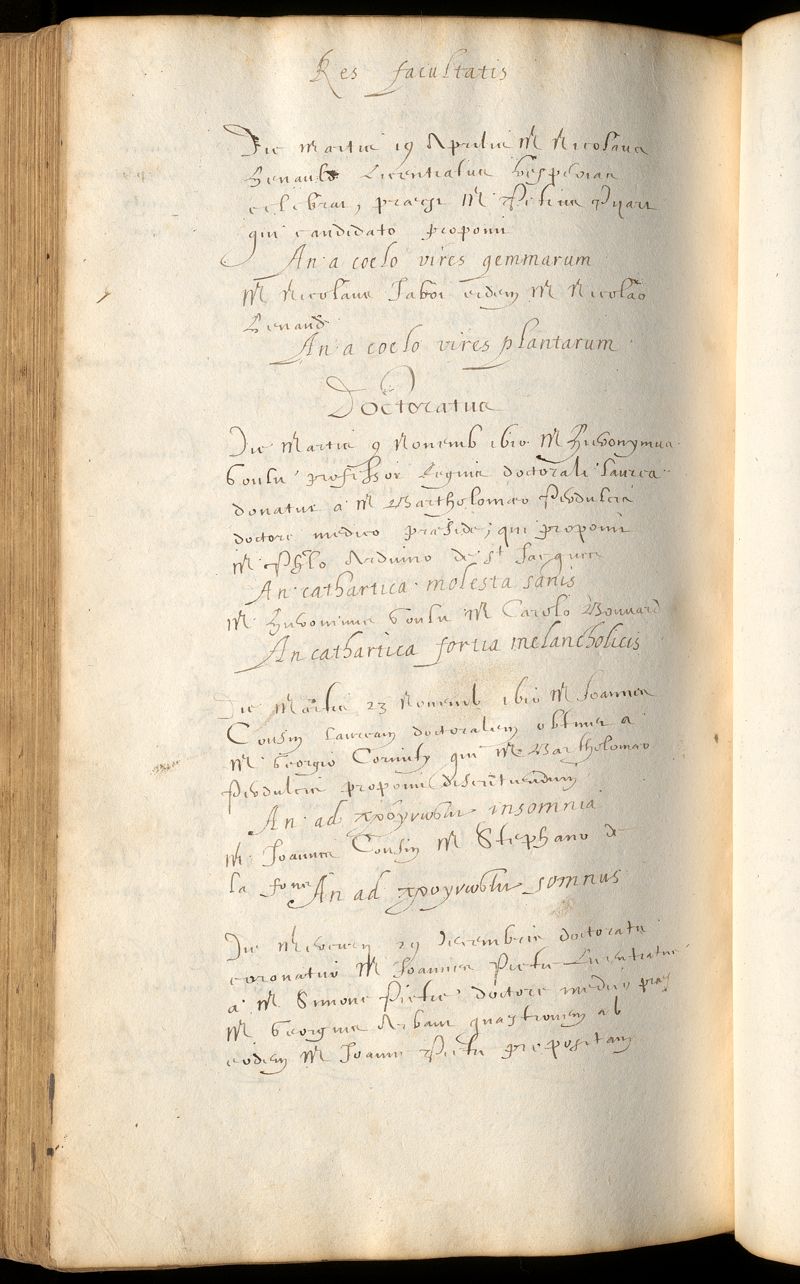 Res facultatis
Die Martis 19 Aprilis M Nicolaus
Henault Licentiatus Vesperias
celebrat, praest M Petrus Pijart
qui candidato proponit
An a coelo vires gemmarum
M Nicolaus Jabot eidem M Nicolao
Henault
An a coelo vires plantarum
Doctoratus
Die Martis 9 Novemb ibid M Hieronymus
Goulu professor Regius doctorali laurea
donatur a M Bartholomaeo Perdulcis
doctore medico praeside, qui proponit
M Philo Arduino de St Jacques
An cathartica molesta sanis
M Hieronimus Goulu M Carolo Bouvard
An cathartica fortia melancholicis
Die Martis 23 Novemb ibid M Joannes
Cousin lauream doctoralem obtinet a
M Georgio Cornuty qui M Bartholomaeo
Perdulcis proponit discutiendum
An ad πρόγνωσιν insomnia
M Joannes Cousin M Stephano de
la font An ad πρόγνωσιν somnus
Die Mercurij 29 decembris doctoratu
coronatur M Joannes Pietre Licentiatus
a M Simone Pietre doctore medico
M Georgius quaestionem ab
eodem M Joanne Pietre propositam